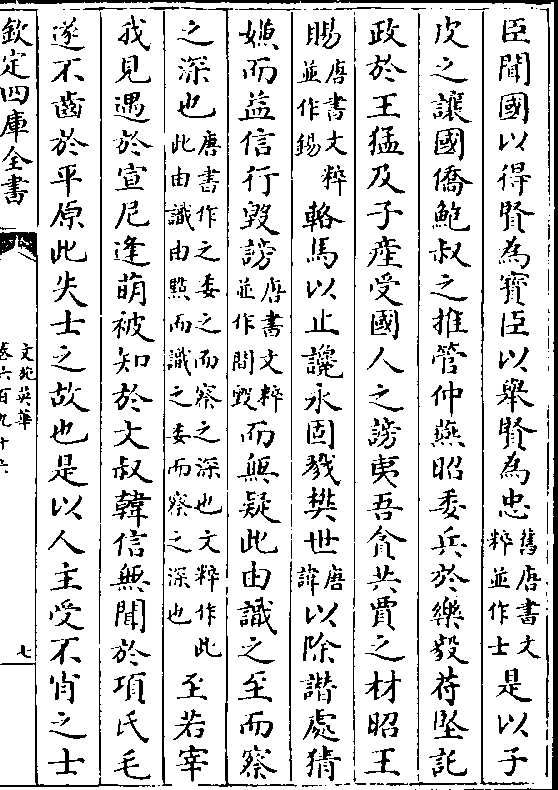 臣聞國以得賢為寳臣以舉賢為忠舊唐書文粹並作士是以子
皮之讓國僑鮑叔之推管仲燕昭委兵於樂毅苻堅託
政於王猛及子産受國人之謗夷吾貪共賈之材昭王
賜唐書文粹並作錫輅馬以止讒永固戮樊世唐諱以除譖處猜
嫌而益信行毀謗唐書文粹並作間毀而無疑此由識之至而察
之深也唐書作之委之而察之深也文粹作此此由識由黙而識之委而察之深也至若宰
我見遇於宣尼逢萌被知於文叔韓信無聞於項氏毛
遂不齒於平原此失士之故也是以人主受不肖之士
欽定四庫全書
文苑英華
卷六百九十六
七